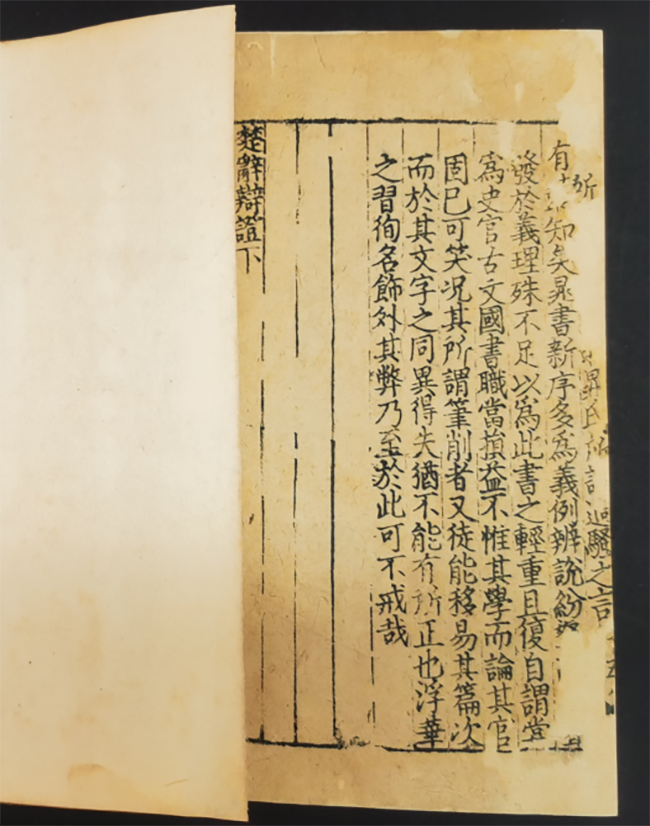 之言
有所 知矣晁書新序多爲義例辨說紛
發於義理殊不足以爲此書之輕重且復自謂嘗
爲史官古文國書職當損益不惟其學而論其官
固已可笑况其所謂筆削者又徒能移易其篇次
而於其文字之同異得失猶不能有所正也浮華
之習徇名飾外其弊乃至於此可不戒哉
楚辭辯證下